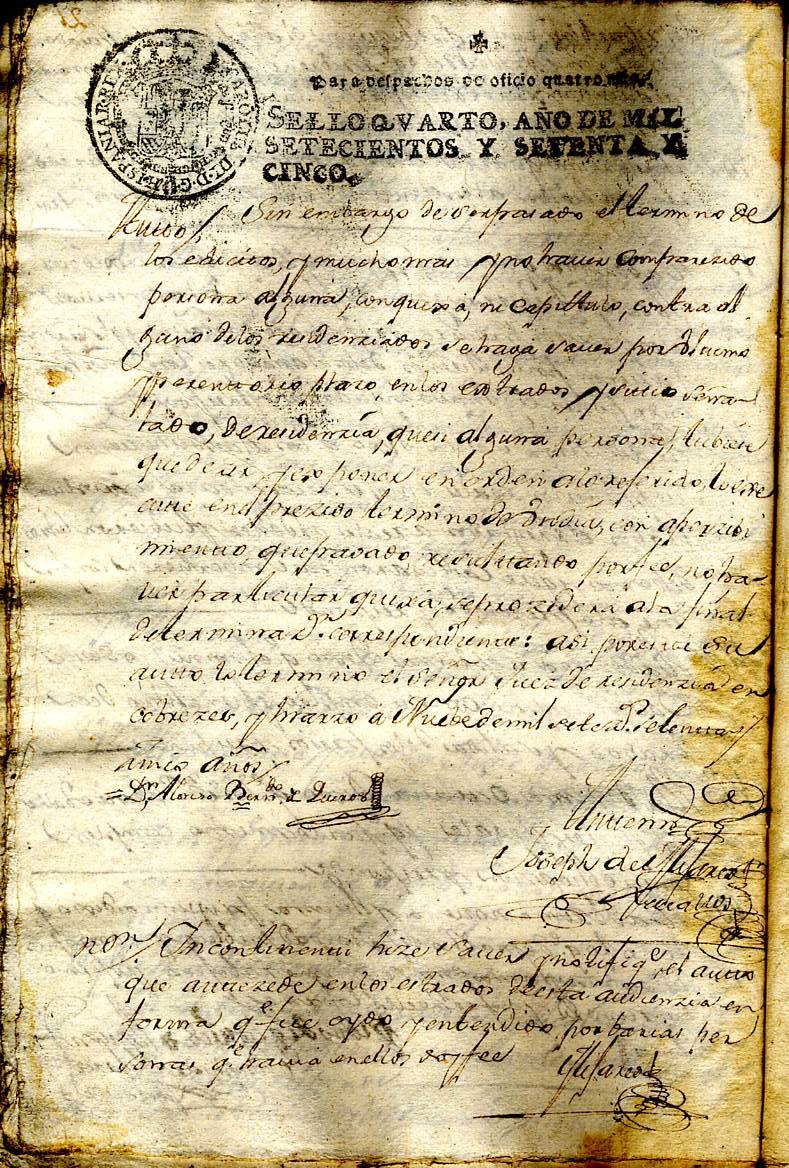 Para despachos de oficio quatro mrs.
SELLO QVARTO, AÑO DE MIL
SETECIENTOS Y SETENTA Y
CINCO.
CAROLUS III D. G. HISPANIAR. REX
Auto / Sin embargo de ser pasado el termino de
los edictos, y mucho mas y no haver comparezido
persona alguna, con quexa, ni capittulo, contra al
guno de los residenziados se haga saver por ultimo
y perentorio plazo, en los estrados y sitio señа-
lado, de residenzia, que si alguna persona, tubiese
que dezir y exponer en orden a lo referido, lo
en el preziso termino de dia, con aperzibi
miento, que pasado, resultando por fee, no ha-
ver particular quexa, se prozederá a la final
determinaz.n correspondiente: asi por este su
auto lo determino el Señor Juez de residenzia en
Cobrezes, y Marzo á Nuebe de mil setez.s setenta y
zinco años /
= D.n Alonso Bern.do de Queros
Antemi
Joseph de
not.n / Incontinenti hize saver y notifiq.e el auto
que antezede en los estrados de esta audienzia en
forma q.e fue oydo y entendido por barias per
sonas q.e havia en ellos doy fee